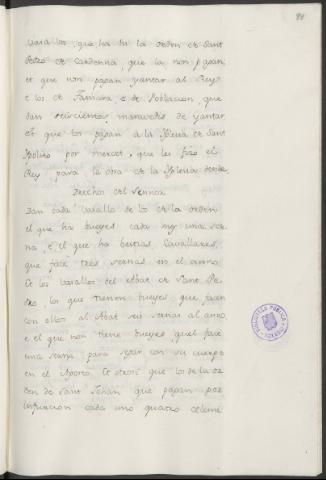 vasallos, que ha su la orden de Sant
Pedro de Cardenna, que la non pagan;
et que non pagan yantar al Rey
e los de Tamara, e de Poblacion, que
dan seiscientos maravedis de yantar.
Et que los pagan a la Iglesia de Sant
Ipolito por merced, que les fizo el
Rey para la obra de la Iglesia
Derechos del Sennor
Dan cada vasallo de los de la orden
el que ha bueyes cada mes una ser-
na, e el que ha bestias Cavallares,
que face tres sernas en el anno.
Et los vasallos del Abat de Sant Pe-
dro, los que tienen bueyes que facen
con ellos al Abat seis sernas al anno,
e el que non tiene bueyes quel face
una serna para segar con su cuerpo
en el Agosto. Et otrosi que los de la or-
den de Sant Johan que pagan por
infurcion cada uno quatro celemi
BIBLIOTECA PUBLICA